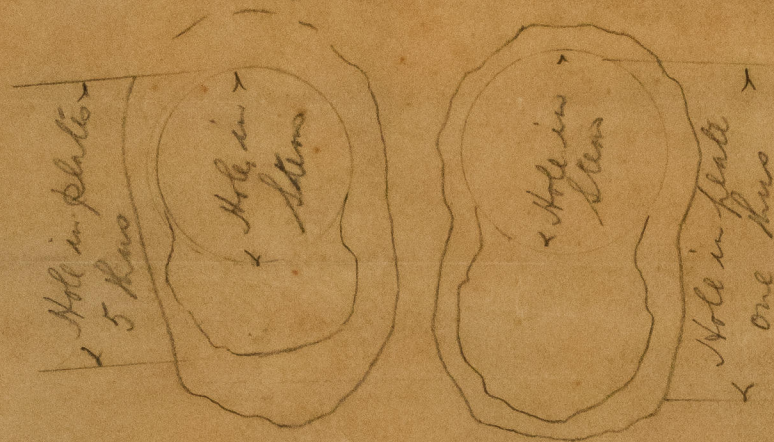 Hole in plate
5 thus
Hole in
Stem
Hole in
Stem
Hole in plate
one thus